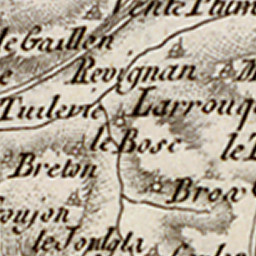 Vente Plum
le Gaillon
Revignan
Tuilerie
Larrouq
le Bosc
le
Breton
Brox
oujon